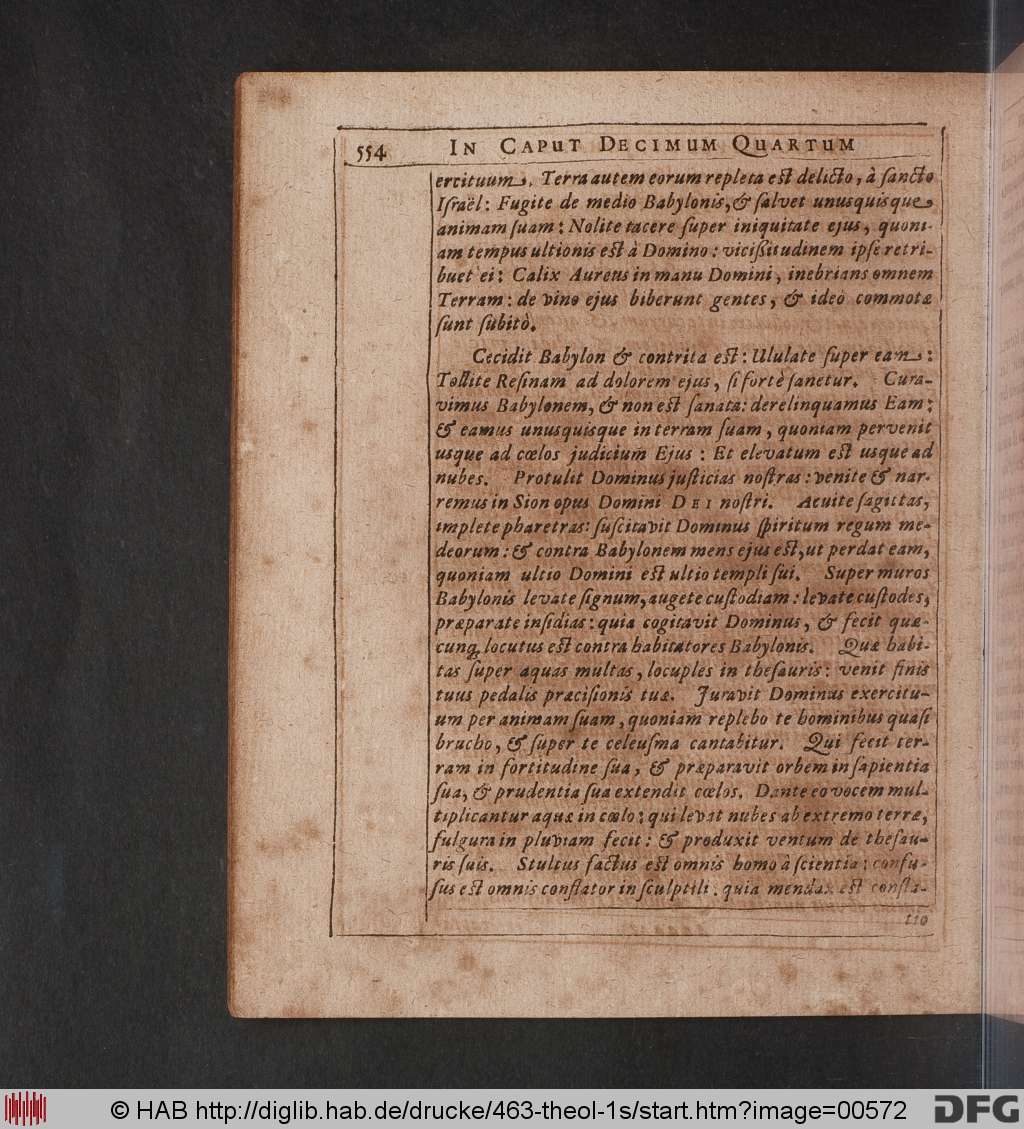 554 IN CAPUT DECIMUM QUARTUM
ercituum. Terra autem eorum repleta est delicto, à sancto
Israël: Fugite de medio Babylonis, & salvet unusquisque
animam suam: Nolite tacere super iniquitate ejus, quoni-
am tempus ultionis est à Domino: vicissitudinem ipse retri-
buet ei: Calix Aureus in manu Domini, inebrians omnem
Terram: de vino ejus biberunt gentes, & ideò commotæ
sunt subitò.
Cecidit Babylon & contrita est: Ululate super eam:
Tollite Resinam ad dolorem ejus, si fortè sanetur. Cura-
vimus Babylonem, & non est sanata: derelinquamus Eam:
& eamus unusquisque in terram suam, quoniam pervenit
usque ad cœlos judicium Ejus: Et elevatum est usque ad
nubes. Protulit Dominus justicias nostras: venite & nar-
remus in Sion opus Domini DEI nostri. Acuite sagittas,
implete pharetras: suscitavit Dominus spiritum regum me-
deorum: & contra Babylonem mens ejus est, ut perdat eam,
quoniam ultio Domini est ultio templi sui. Super muros
Babylonis levate signum, augete custodiam: levate custodes,
præparate insidias: quia cogitavit Dominus, & fecit quæ-
cunq; locutus est contra habitatores Babylonis. Quæ habi-
tas super aquas multas, locuples in thesauris: venit finis
tuus pedalis præcisionis tuæ. Juravit Dominus exercitu-
um per animam suam, quoniam replebo te hominibus quasi
brucho, & super te celeusma cantabitur. Qui fecit ter-
ram in fortitudine sua, & præparavit orbem in sapientia
sua, & prudentia sua extendit cœlos. Dante eo vocem mul-
tiplicantur aquæ in cœlo: qui levat nubes ab extremo terræ,
fulgura in pluviam fecit: & produxit ventum de thesau-
ris suis. Stultus factus est omnis homo à scientia: confu-
sus est omnis conflator in sculptili. quia mendax est confla-
tio
© HAB http://diglib.hab.de/drucke/463-theol-1s/start.htm?image=00572
DFG